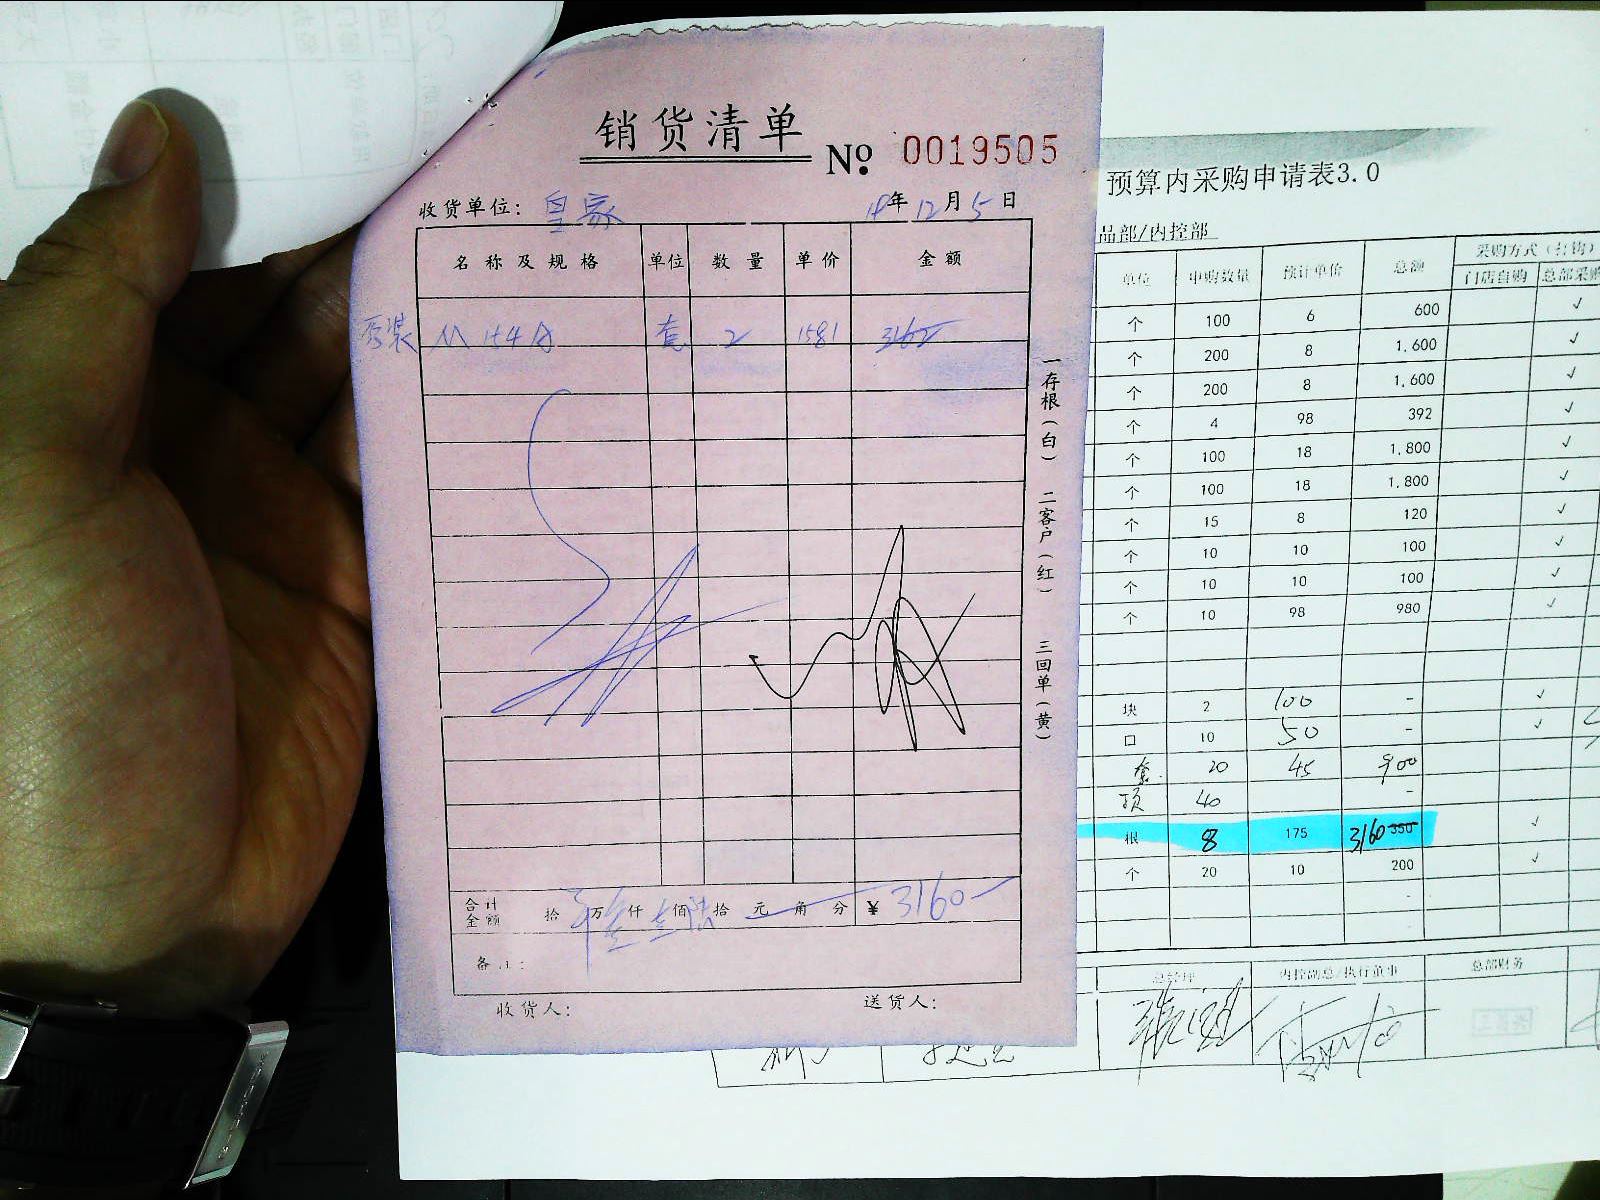 销货清单
No. 0019505
收货单位: 皇家 18年 12月 5日
名称及规格 单位 数量 单价 金额
套 2 1581 3162
一存根(白) 二客户(红) 三回单(黄)
合计金额 拾 万 仟 佰 拾 元 角 分 ¥ 3160
备注:
收货人: 送货人:
预算内采购申请表3.0
品部/内控部
单位 申购数量 预计单价 总额 采购方式(打钩)
门店自购 总部采购
个 100 6 600 ✓
个 200 8 1,600 ✓
个 200 8 1,600 ✓
个 4 98 392 ✓
个 100 18 1,800 ✓
个 100 18 1,800 ✓
个 15 8 120 ✓
个 10 10 100 ✓
个 10 10 100 ✓
个 10 98 980 ✓
块 2 100 - ✓
口 10 50 - ✓
套 20 45 900
顶 40 -
根 8 175 3160 350 ✓
个 20 10 200 ✓
总经理 内控副总/执行董事 总部财务